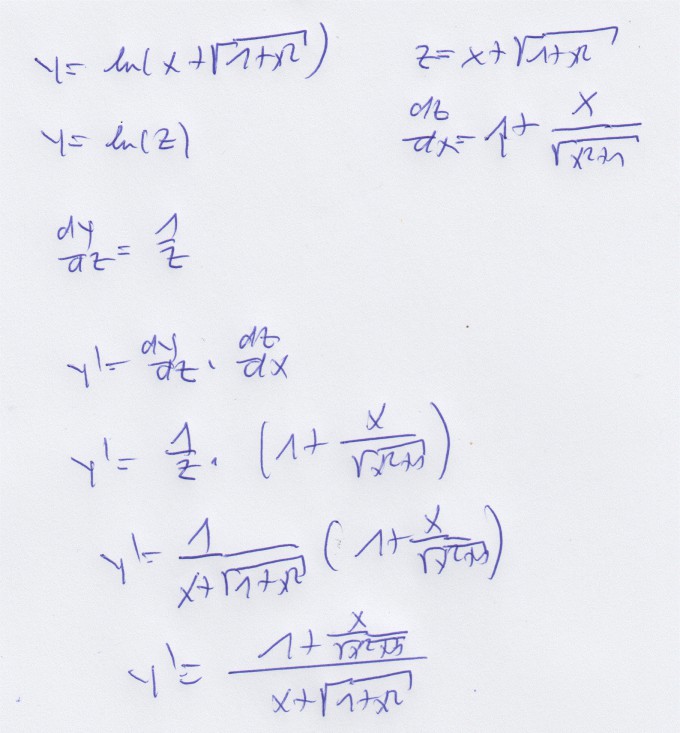 y = ln(x+√(1+x²))    z = x+√(1+x²)
y = ln(z)    dz/dx = 1 + x/√(x²+1)
dy/dz = 1/z
y' = dy/dz · dz/dx
y' = 1/z · (1 + x/√(x²+1))
y' = 1/(x+√(1+x²)) (1 + x/√(x²+1))
y' = (1 + x/√(x²+1))/(x+√(1+x²))